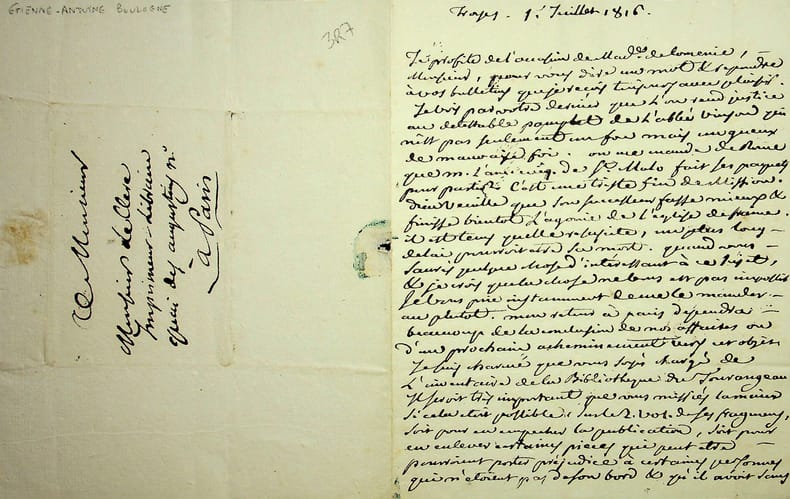 ÉTIENNE-ANTOINE BOULOGNE
3R7
A Monsieur
Monsieur Le Clere
imprimeur-Libraire
quai des augustins n°
à Paris
Troyes. 1er Juillet 1816.
Je profite de l'occasion de Mad. de Lomenie,
Monsieur, pour vous dire un mot & répondre
à vos bulletins que je reçois toujours avec plaisir.
Je vois par votre dernier que l'on rend justice
au detestable pamphlet de l'abbé Vinson qui
n'est pas seulement un fou mais un gueux
de mauvaise foi. on me mande de Rome
que m. l'anc. évêq. de St. Malo fait ses paquets
pour partir. C'est une triste fin de Mission.
dieu veuille que son successeur fasse mieux &
finisse bientot l'agonie de l'église
il est tems qu'elle ressuscite, un plus long
delai pourroit etre sa mort. quand vous
saurez quelque chose d'interessant à ce sujet,
& je crois que la chose ne vous est pas impossible
je vous prie instamment de me le mander
au plutot. mon retour à paris dependra
beaucoup de la conclusion de nos affaires ou
d'un prochain acheminement vers cet objet.
Je suis charmé que vous soyés chargé de
L'inventaire de la Bibliotheque du Tourangeau
Il seroit très important que vous missiés la main
si cela etoit possible, sur le 2. vol. de ses fragmens,
soit pour en empecher la publication, soit pour
en enlever certaines pieces qui peut etre
pourroient porter préjudice à certaines personnes
qui n'etoient pas de son bord & qu'il avoit sans